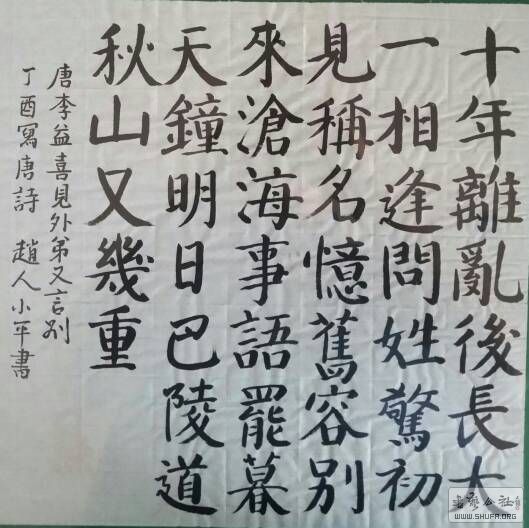 十年離亂後長大
一相逢問姓驚初
見稱名憶舊容別
來滄海事語罷暮
天鐘明日巴陵道
秋山又幾重
唐李益喜見外弟又言別
丁酉寫唐詩 趙人小平書
書法公社
WWW.SHUFA.ORG